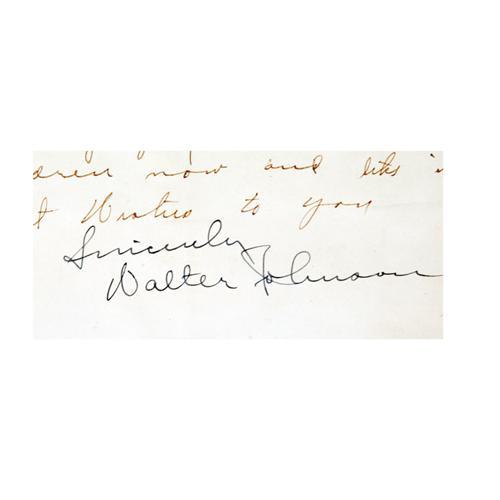 dren now and like i
t Wishes to you
Sincerely
Walter Johnson